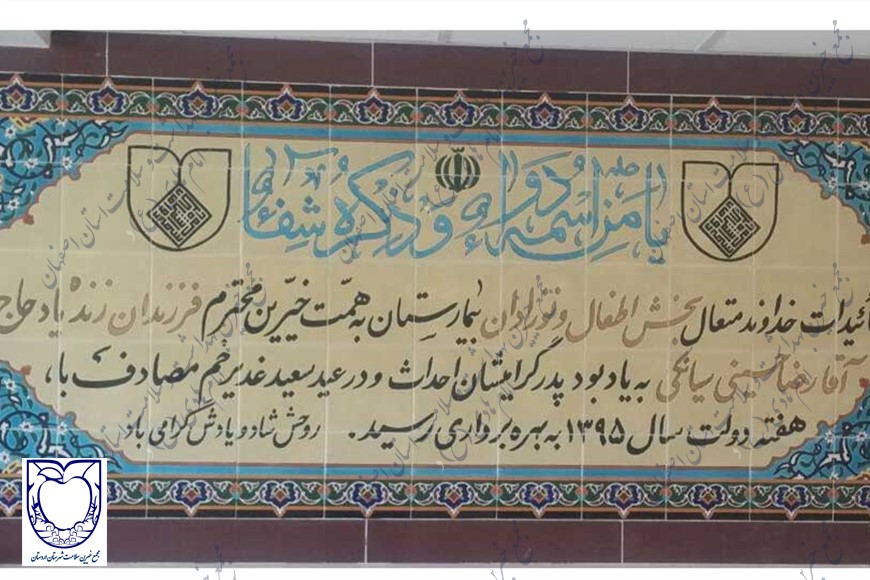 یا من اسمه دواء و ذکره شفاء
تأئیدات خداوند متعال بخش اطفال و نوزادان بیمارستان به همّت خیّرین محترم فرزندان زنده یاد حاج
آقا رضا حسینی سیانکی به یاد بود پدر گرامیشان احداث و در عید سعید غدیر خم مصادف با
هفته دولت سال ۱۳۹۵ به بهره برداری رسید. روحش شاد و یادش گرامی باد
مجمع خیرین سلامت شهرستان اردستان